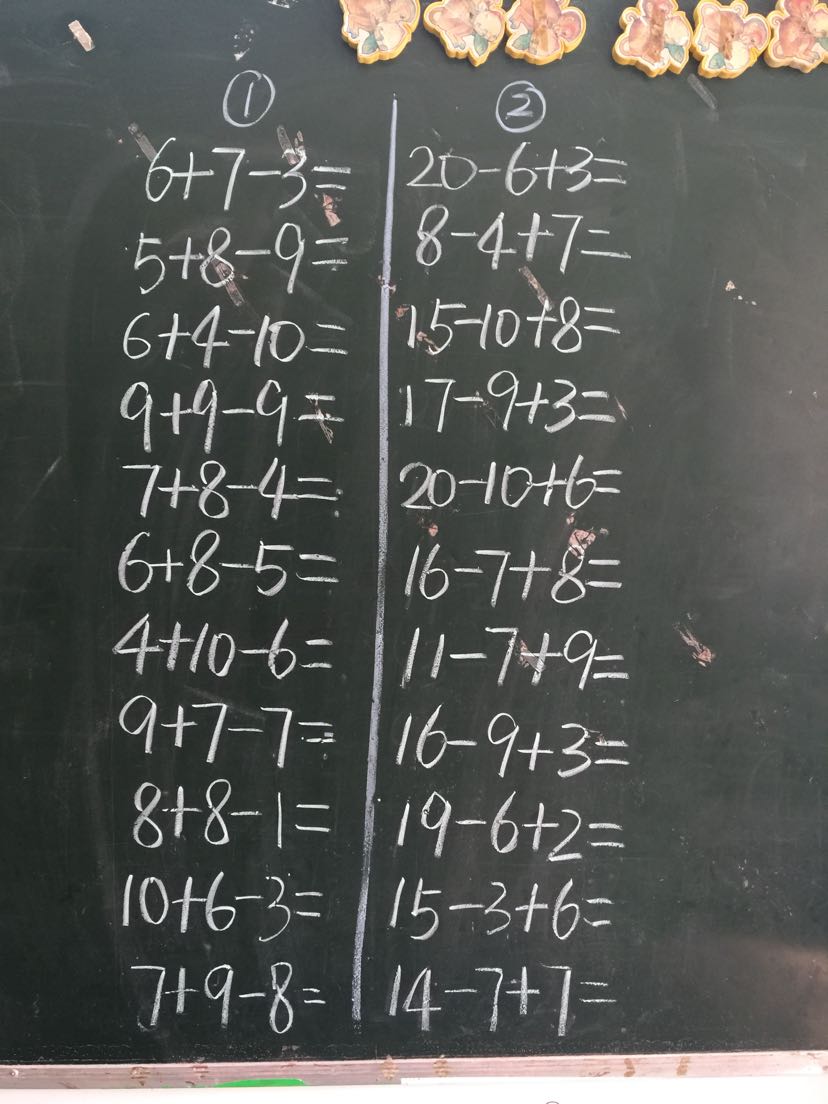 ①
6+7-3=
5+8-9=
6+4-10=
9+9-9=
7+8-4=
6+8-5=
4+10-6=
9+7-7=
8+8-1=
10+6-3=
7+9-8=
②
20-6+3=
8-4+7=
15-10+8=
17-9+3=
20-10+6=
16-7+8=
11-7+9=
16-9+3=
19-6+2=
15-3+6=
14-7+7=